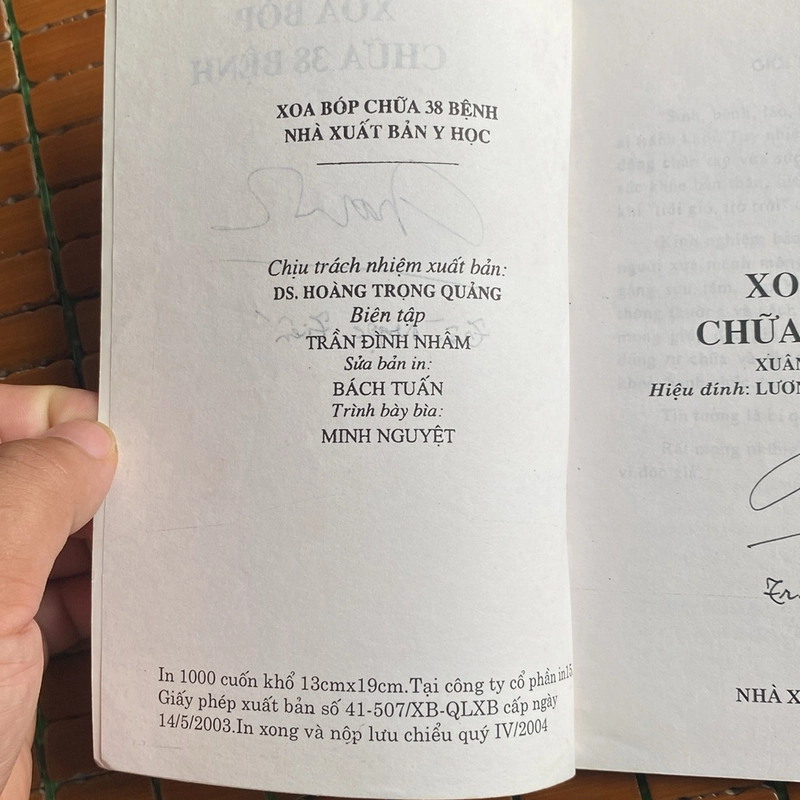 XOA BÓP CHỮA 38 BỆNH
NHÀ XUẤT BẢN Y HỌC
Chịu trách nhiệm xuất bản:
DS. HOÀNG TRỌNG QUẢNG
Biên tập
TRẦN ĐÌNH NHÂM
Sửa bản in:
BÁCH TUẤN
Trình bày bìa:
MINH NGUYỆT
In 1000 cuốn khổ 13cmx19cm.Tại công ty cổ phần in15.
Giấy phép xuất bản số 41-507/XB-QLXB cấp ngày
14/5/2003.In xong và nộp lưu chiểu quý IV/2004
XO
CHỮA
XUÂN
Hiệu đính: LƯƠN
NHÀ X